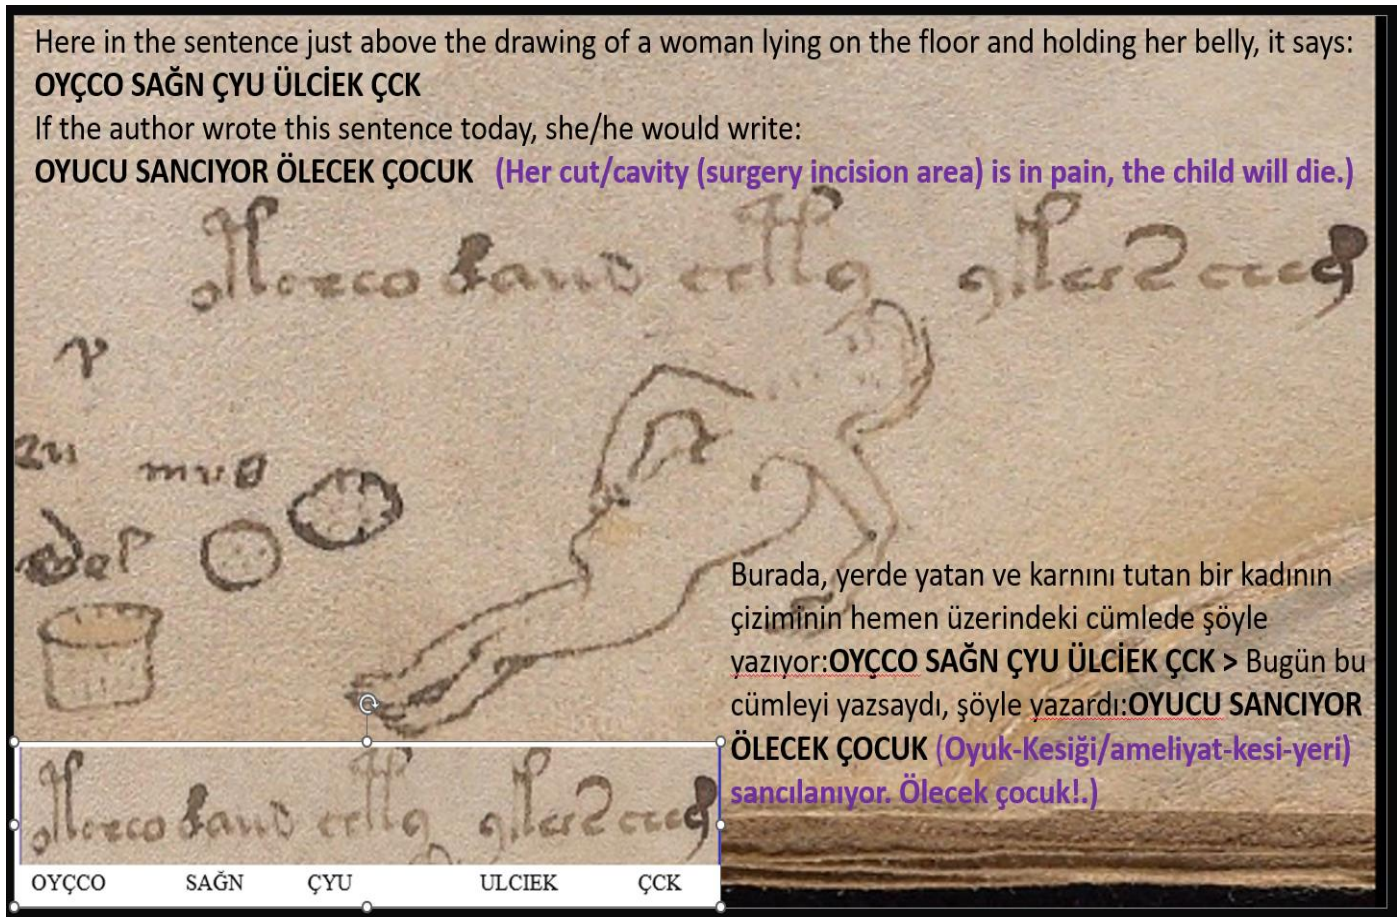 Here in the sentence just above the drawing of a woman lying on the floor and holding her belly, it says:
OYÇCO SAĞN ÇYU ÜLCİEK ÇCK
If the author wrote this sentence today, she/he would write:
OYUCU SANCIYOR ÖLECEK ÇOCUK (Her cut/cavity (surgery incision area) is in pain, the child will die.)
Burada, yerde yatan ve karnını tutan bir kadının
çiziminin hemen üzerindeki cümlede şöyle
yazıyor:OYÇCO SAĞN ÇYU ÜLCİEK ÇCK > Bugün bu
cümleyi yazsaydı, şöyle yazardı:OYUCU SANCIYOR
ÖLECEK ÇOCUK (Oyuk-Kesiği/ameliyat-kesi-yeri)
sancılanıyor. Ölecek çocuk!.)
OYÇCO SAĞN ÇYU ULCIEK ÇCK